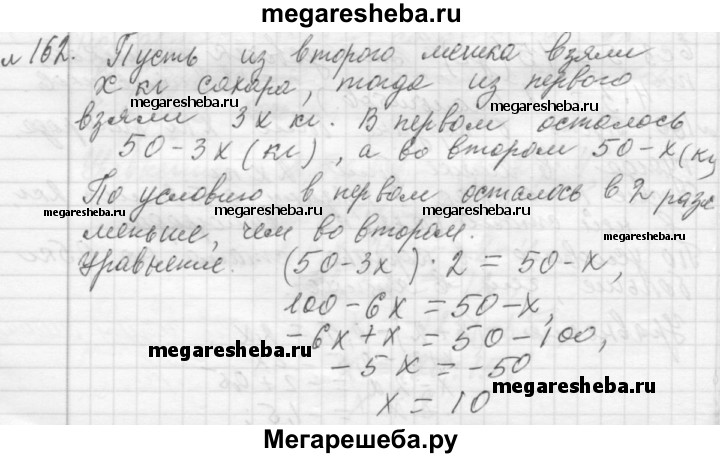 megaresheba.ru
№162. Пусть из второго мешка взяли
x кг сахара, тогда из первого
megaresheba.ru megaresheba.ru
взяли 3x кг. В первом осталось
50-3x (кг), а во втором 50-x (кг)
По условию в первом осталось в 2 раза
megaresheba.ru megaresheba.ru megaresheba.ru
меньше, чем во втором.
Уравнение. (50-3x)·2=50-x,
100-6x=50-x,
-6x+x=50-100,
megaresheba.ru
-5x=-50
megaresheba.ru
x=10
Мегарешеба.ру